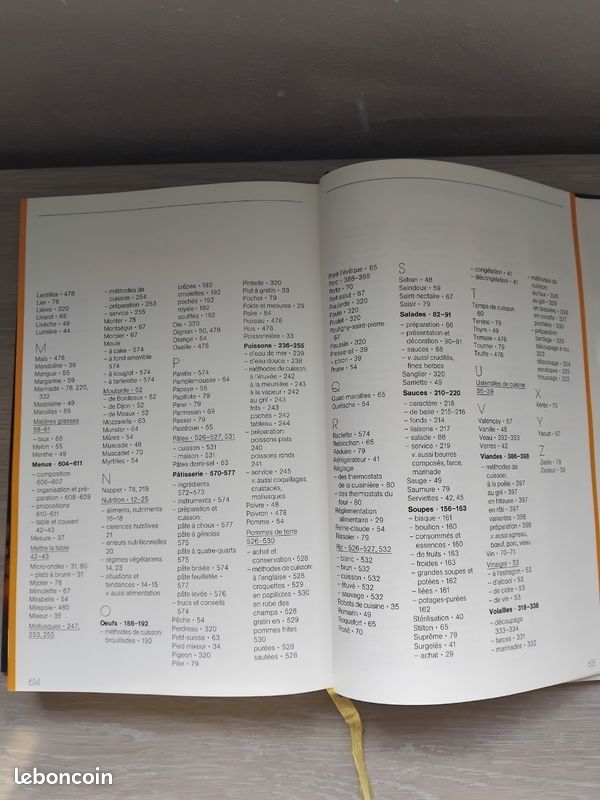 Lentilles • 478
Lier • 78
Lièvre • 320
Livarot • 65
Livèche • 49
Lumière • 44
M
Maïs • 478
Mandoline • 39
Mangue • 55
Margarine • 59
Marinade • 78, 220,
332
Marjolaine • 49
Marcilles • 65
Matières grasses
58-61
– taux • 68
Melon • 55
Menthe • 49
Menus • 604-611
– composition
606-607
– organisation et pré-
paration • 608-609
– propositions
610-611
– table et couvert
42-43
Mesure • 37
Mettre la table
42-43
Micro-ondes • 31, 80
– plats à brunir • 31
Mijoter • 78
Mimolette • 67
Mirabelle • 54
Mirepoix • 480
Mixeur • 35
Mollusques • 247,
253, 255
– méthodes de
cuisson • 254
– préparation • 253
– service • 255
Monter • 78
Montségur • 67
Morbier • 67
Moule
– à cake • 574
– à fond amovible
574
– à kouglof • 574
– à tartelette • 574
Moutarde • 52
– de Bordeaux • 52
– de Dijon • 52
– de Meaux • 52
Mozzarella • 63
Munster • 64
Mûres • 54
Muscade • 48
Muscadet • 70
Myrtilles • 54
N
Napper • 78, 219
Nutrition • 12-25
– aliments, nutriments
16-18
– carences nutritives
21
– erreurs nutritionnelles
20
– régimes végétariens
14, 23
– situations et
tendances • 14-15
v. aussi alimentation
O
Oeufs • 188-192
– méthodes de cuisson:
brouillades • 192
crêpes • 192
omelettes • 192
pochés • 192
royale • 192
soufflés • 192
Oie • 320
Oignon • 50, 478
Orange • 54
Oseille • 478
P
Palette • 574
Pamplemousse • 54
Papaye • 55
Papillote • 79
Parer • 79
Parmesan • 69
Passer • 79
Pastèque • 55
Pâtes • 526-527, 531
– cuisson • 531
– maison • 531
Pâtes demi-sel • 63
Pâtisserie • 570-577
– ingrédients
572-573
– instruments • 574
– préparation et
cuisson:
pâte à choux • 577
pâte à génoise
575
pâte à quatre-quarts
575
pâte brisée • 574
pâte feuilletée •
577
pâte levée • 576
– trucs et conseils
574
Pêche • 54
Perdreau • 320
Petit-suisse • 63
Pied mixeur • 34
Pigeon • 320
Piler • 79
Pintade • 320
Plat à gratin • 33
Pocher • 79
Poids et mesures • 29
Poire • 54
Poireau • 478
Pois • 478
Poissonnière • 33
Poissons • 236-255
– d'eau de mer • 239
– d'eau douce • 238
– méthodes de cuisson:
à l'étuvée • 242
à la meunière • 243
à la vapeur • 242
au gril • 243
frits • 243
pochés • 242
tableau • 244
– préparation:
poissons plats
240
poissons ronds
241
– service • 245
v. aussi coquillages,
crustacés,
mollusques
Poivre • 48
Poivron • 478
Pomme • 54
Pommes de terre
526-530
– achat et
conservation • 528
– méthodes de cuisson:
à l'anglaise • 528
croquettes • 529
en papillotes • 530
en robe des
champs • 528
gratin en • 529
pommes frites
530
purées • 528
sautées • 528
614
Pont-l'évêque • 65
Porc • 388-389
Porto • 70
Port-salut • 67
Poularde • 320
Poule • 320
Poulet • 320
Pouligny-saint-pierre
67
Poussin • 320
Presse-ail • 39
– citron • 39
Prune • 54
Q
Quart-maroilles • 65
Quetsche • 54
R
Raclette • 574
Reblochon • 65
Réduire • 79
Réfrigérateur • 41
Réglage
– des thermostats
de la cuisinière • 80
– des thermostats du
four • 80
Réglementation
alimentaire • 29
Reine-claude • 54
Rissoler • 79
Riz • 526-527, 532
– blanc • 532
– brun • 532
– cuisson • 532
– étuvé • 532
– sauvage • 532
Robots de cuisine • 35
Romarin • 49
Roquefort • 65
Rosé • 70
S
Safran • 48
Saindoux • 59
Saint-nectaire • 67
Saisir • 79
Salades • 82-91
– préparation • 66
– présentation et
décoration • 90-91
– sauces • 88
– v. aussi crudités,
fines herbes
Sanglier • 320
Sarriette • 49
Sauces • 210-220
– caractère • 218
– de base • 215-216
– fonds • 214
– liaisons • 217
– salade • 88
– service • 219
v. aussi beurres
composés, farce,
marinade
Sauge • 49
Saumure • 79
Serviettes • 42, 45
Soupes • 156-163
– bisque • 161
– bouillon • 160
– consommés et
essences • 160
– de fruits • 163
– froides • 163
– grandes soupes et
potées • 162
– liées • 161
– potages-purées
162
Stérilisation • 40
Stilton • 65
Suprême • 79
Surgelés • 41
– achat • 29
– congélation • 41
– décongélation • 41
T
Temps de cuisson
80
Terrine • 79
Thym • 49
Tomate • 478
Tourner • 79
Truffe • 478
U
Ustensiles de cuisine
36-39
V
Valençay • 67
Vanille • 48
Veau • 392-393
Verres • 42
Viandes • 386-398
– méthodes de
cuisson:
à la poêle • 397
au gril • 397
en friteuse • 397
en rôti • 397
variantes • 398
– préparation • 396
v. aussi agneau,
bœuf, porc, veau
Vin • 70-71
Vinaigre • 53
– à l'estragon • 53
– d'alcool • 53
– de cidre • 53
– de vin • 53
Volailles • 318-338
– découpage
333-334
– farces • 331
– marinades • 332
– méthodes de
cuisson:
au four • 326
au gril • 329
X
Xérès • 70
Y
Yaourt • 57
Z
Zeste • 79
Zesteur • 39
615
leboncoin